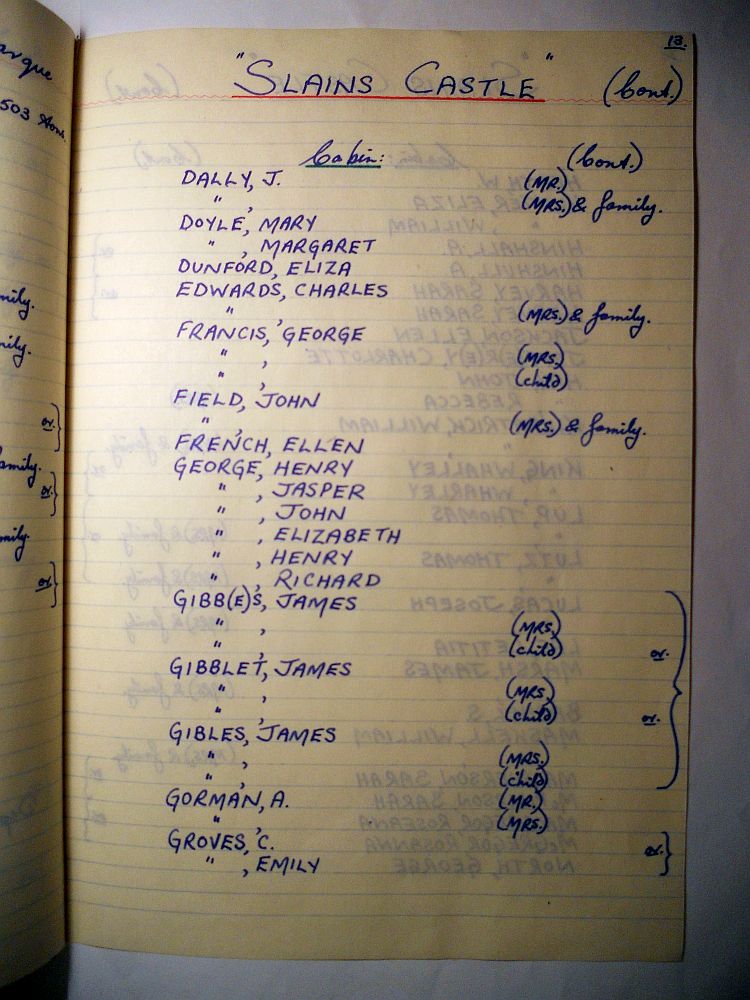 13.
"SLAINS CASTLE" (Cont.)
Cabin: (Cont.)
DALLY, J. (MR.)
" , (MRS.) & family.
DOYLE, MARY
" , MARGARET
DUNFORD, ELIZA
EDWARDS, CHARLES
" , (MRS.) & family.
FRANCIS, GEORGE
" , (MRS.)
" , (child)
FIELD, JOHN
" , (MRS.) & family.
FRENCH, ELLEN
GEORGE, HENRY
" , JASPER
" , JOHN
" , ELIZABETH
" , HENRY
" , RICHARD
GIBB(E)S, JAMES
" , (MRS.)
" , (child) or.
GIBBLET, JAMES
" , (MRS.)
" , (child) or.
GIBLES, JAMES
" , (MRS.)
" , (child)
GORMAN, A. (MR.)
" , (MRS.)
GROVES, C. or.
" , EMILY